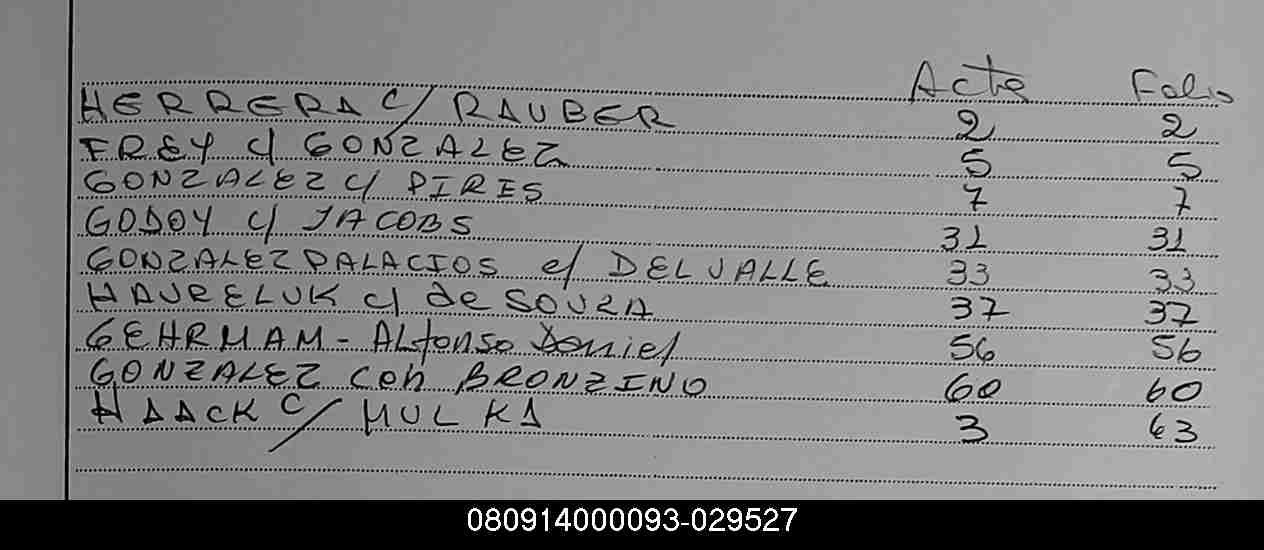 Acta Folio
HERRERA c/ RAUBER 2 2
FREY c/ GONZALEZ 5 5
GONZALEZ c/ PIRES 7 7
GODOY c/ JACOBS 31 31
GONZALEZ PALACIOS c/ DELVALLE 33 33
HAURELUK c/ de SOUZA 37 37
GEHRMAM - Alfonso Daniel 56 56
GONZALEZ con BRONZINO 60 60
HAACK c/ MULKA 3 63
080914000093-029527